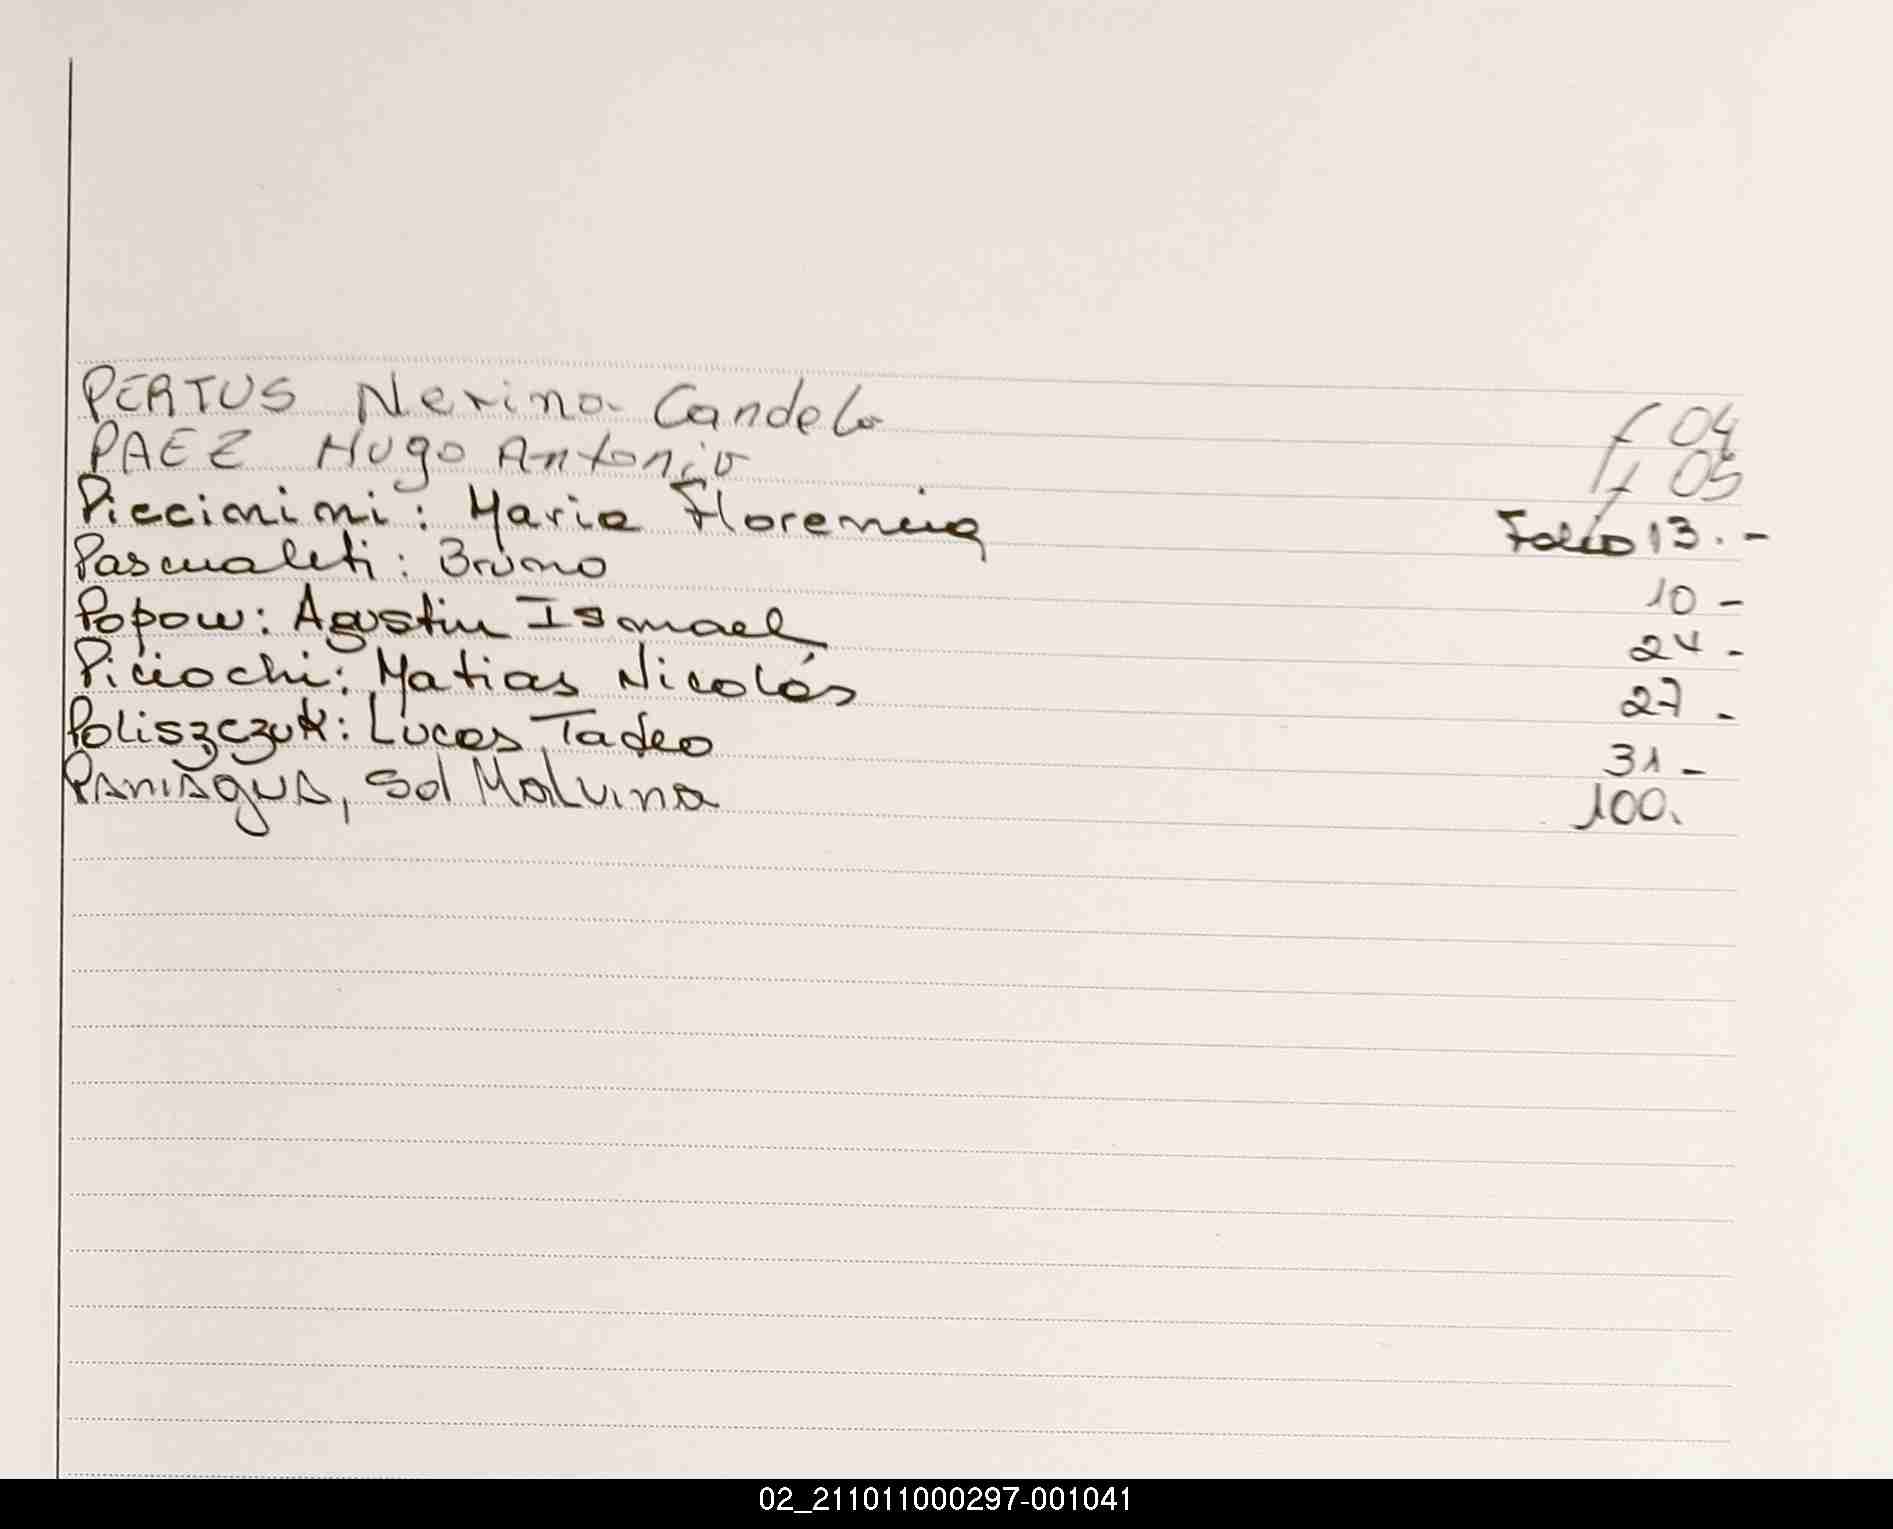 PERTUS Nerina Candela f 04
PAEZ Hugo Antonio f 05
Piccinini: Maria Florencia Folio 13.-
Pascualeti: Bruno 10-
Popow: Agustin Ismael 24-
Piciochi: Matias Nicolás 27-
Poliszczuk: Lucas Tadeo 31-
PANIAGUA, Sol Malvina 100.
02_211011000297-001041